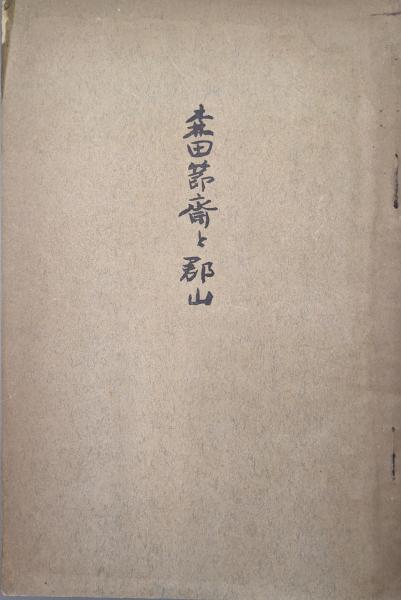 森田節斎と郡山